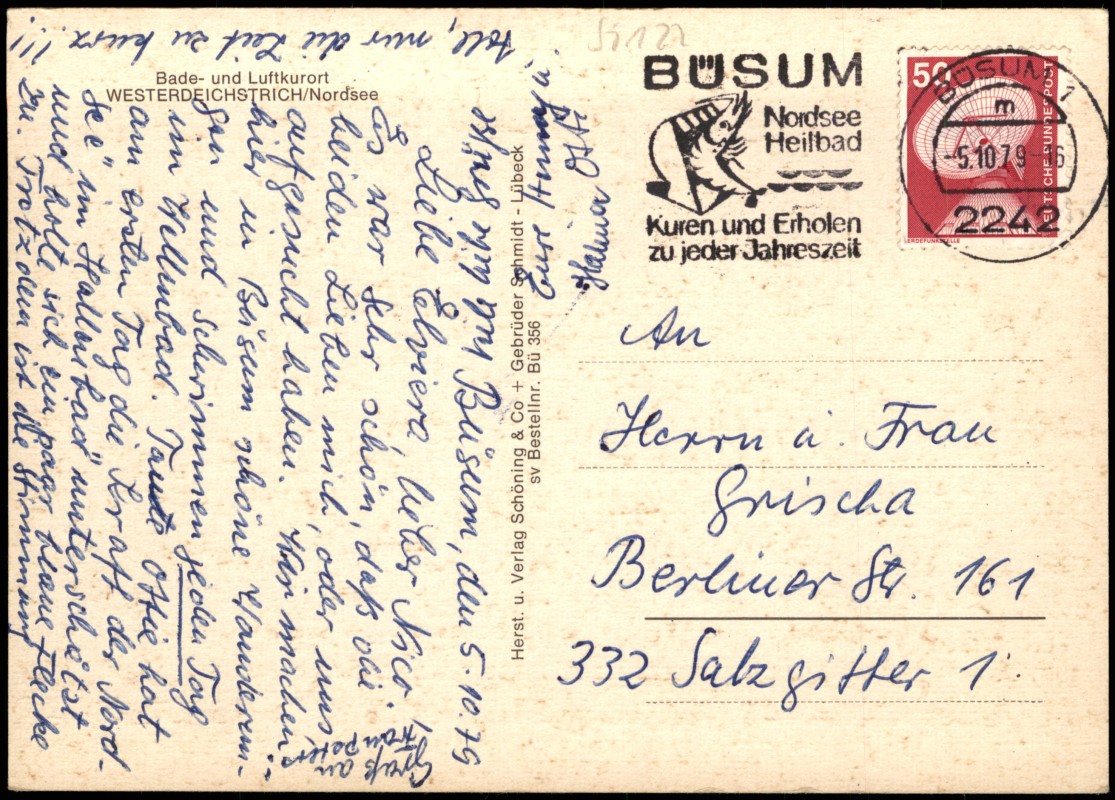 Bade- und Luftkurort
WESTERDEICHSTRICH/Nordsee
Büsum, den 5.10.79
Liebe Elviera, lieber Nico!
Es war sehr schön, daß die
beiden Lieben mich, oder uns,
aufgesucht haben. Wir machen
hier in Büsum schöne Wanderun-
gen und schwimmen jeden Tag
im Wellenbad. Tante Ottie hat
am ersten Tag die Kraft der Nord-
see" im Hallenbad" unterschätzt
und holte sich ein paar blaue Flecke
zu. Trotzdem ist die Stimmung
toll, nur die Zeit zu kurz!!!
Eure
Gruß an
Frau Peters
Herst. u. Verlag Schöning & Co + Gebrüder Schmidt - Lübeck
sv BestellNr. Bü 356
BÜSUM
Nordsee
Heilbad
Kuren und Erholen
zu jeder Jahreszeit
50
DEUTSCHE BUNDESPOST
ERDEFUNKSTELLE
BÜSUM 1
m
-5.10.79-16
2242
An
Herrn u. Frau
Grischa
Berliner Str. 161
332 Salzgitter 1